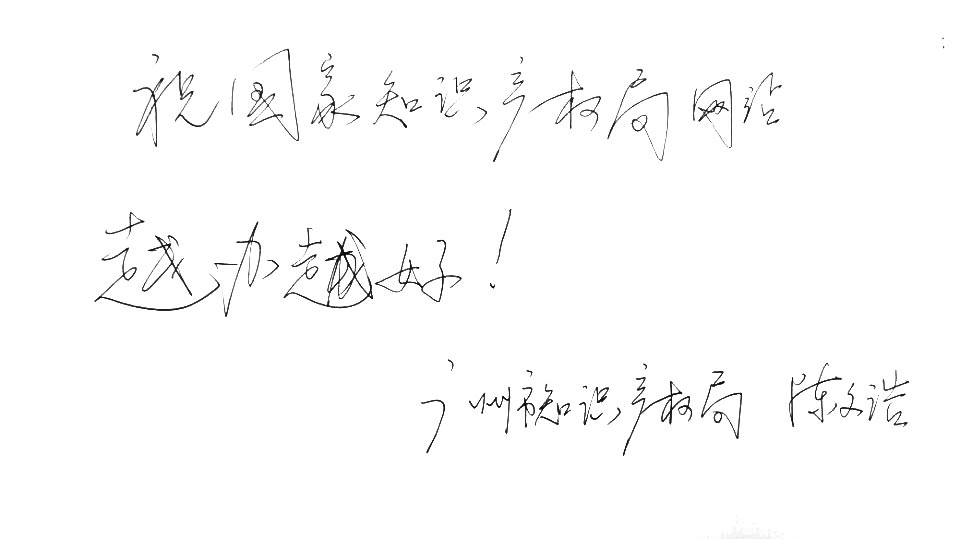 祝国家知识产权局网站
越办越好！
广州市知识产权局 陈文浩